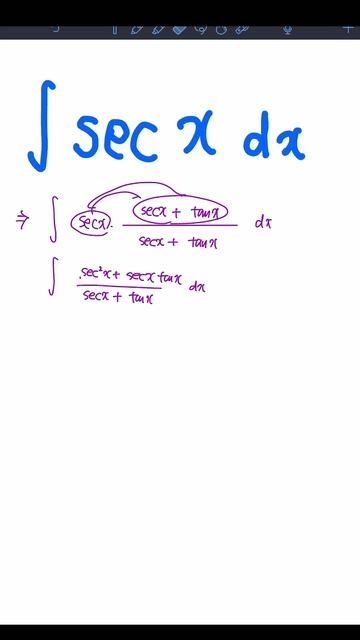 ∫ sec x dx
⇒ ∫ secx · (secx + tanx)/(secx + tanx) dx
∫ (sec²x + secx tanx)/(secx + tanx) dx